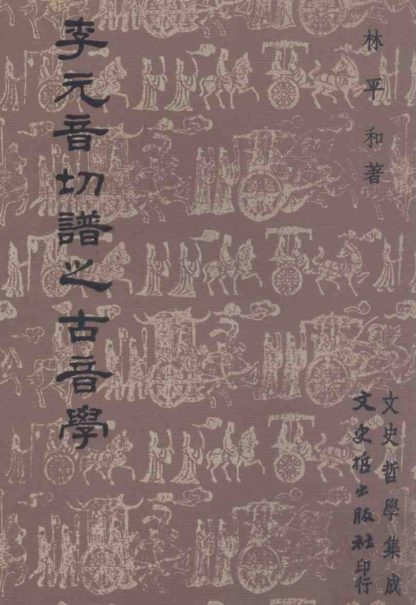 林平和著
李元音切譜之古音學
文史哲學集成
文史哲出版社印行